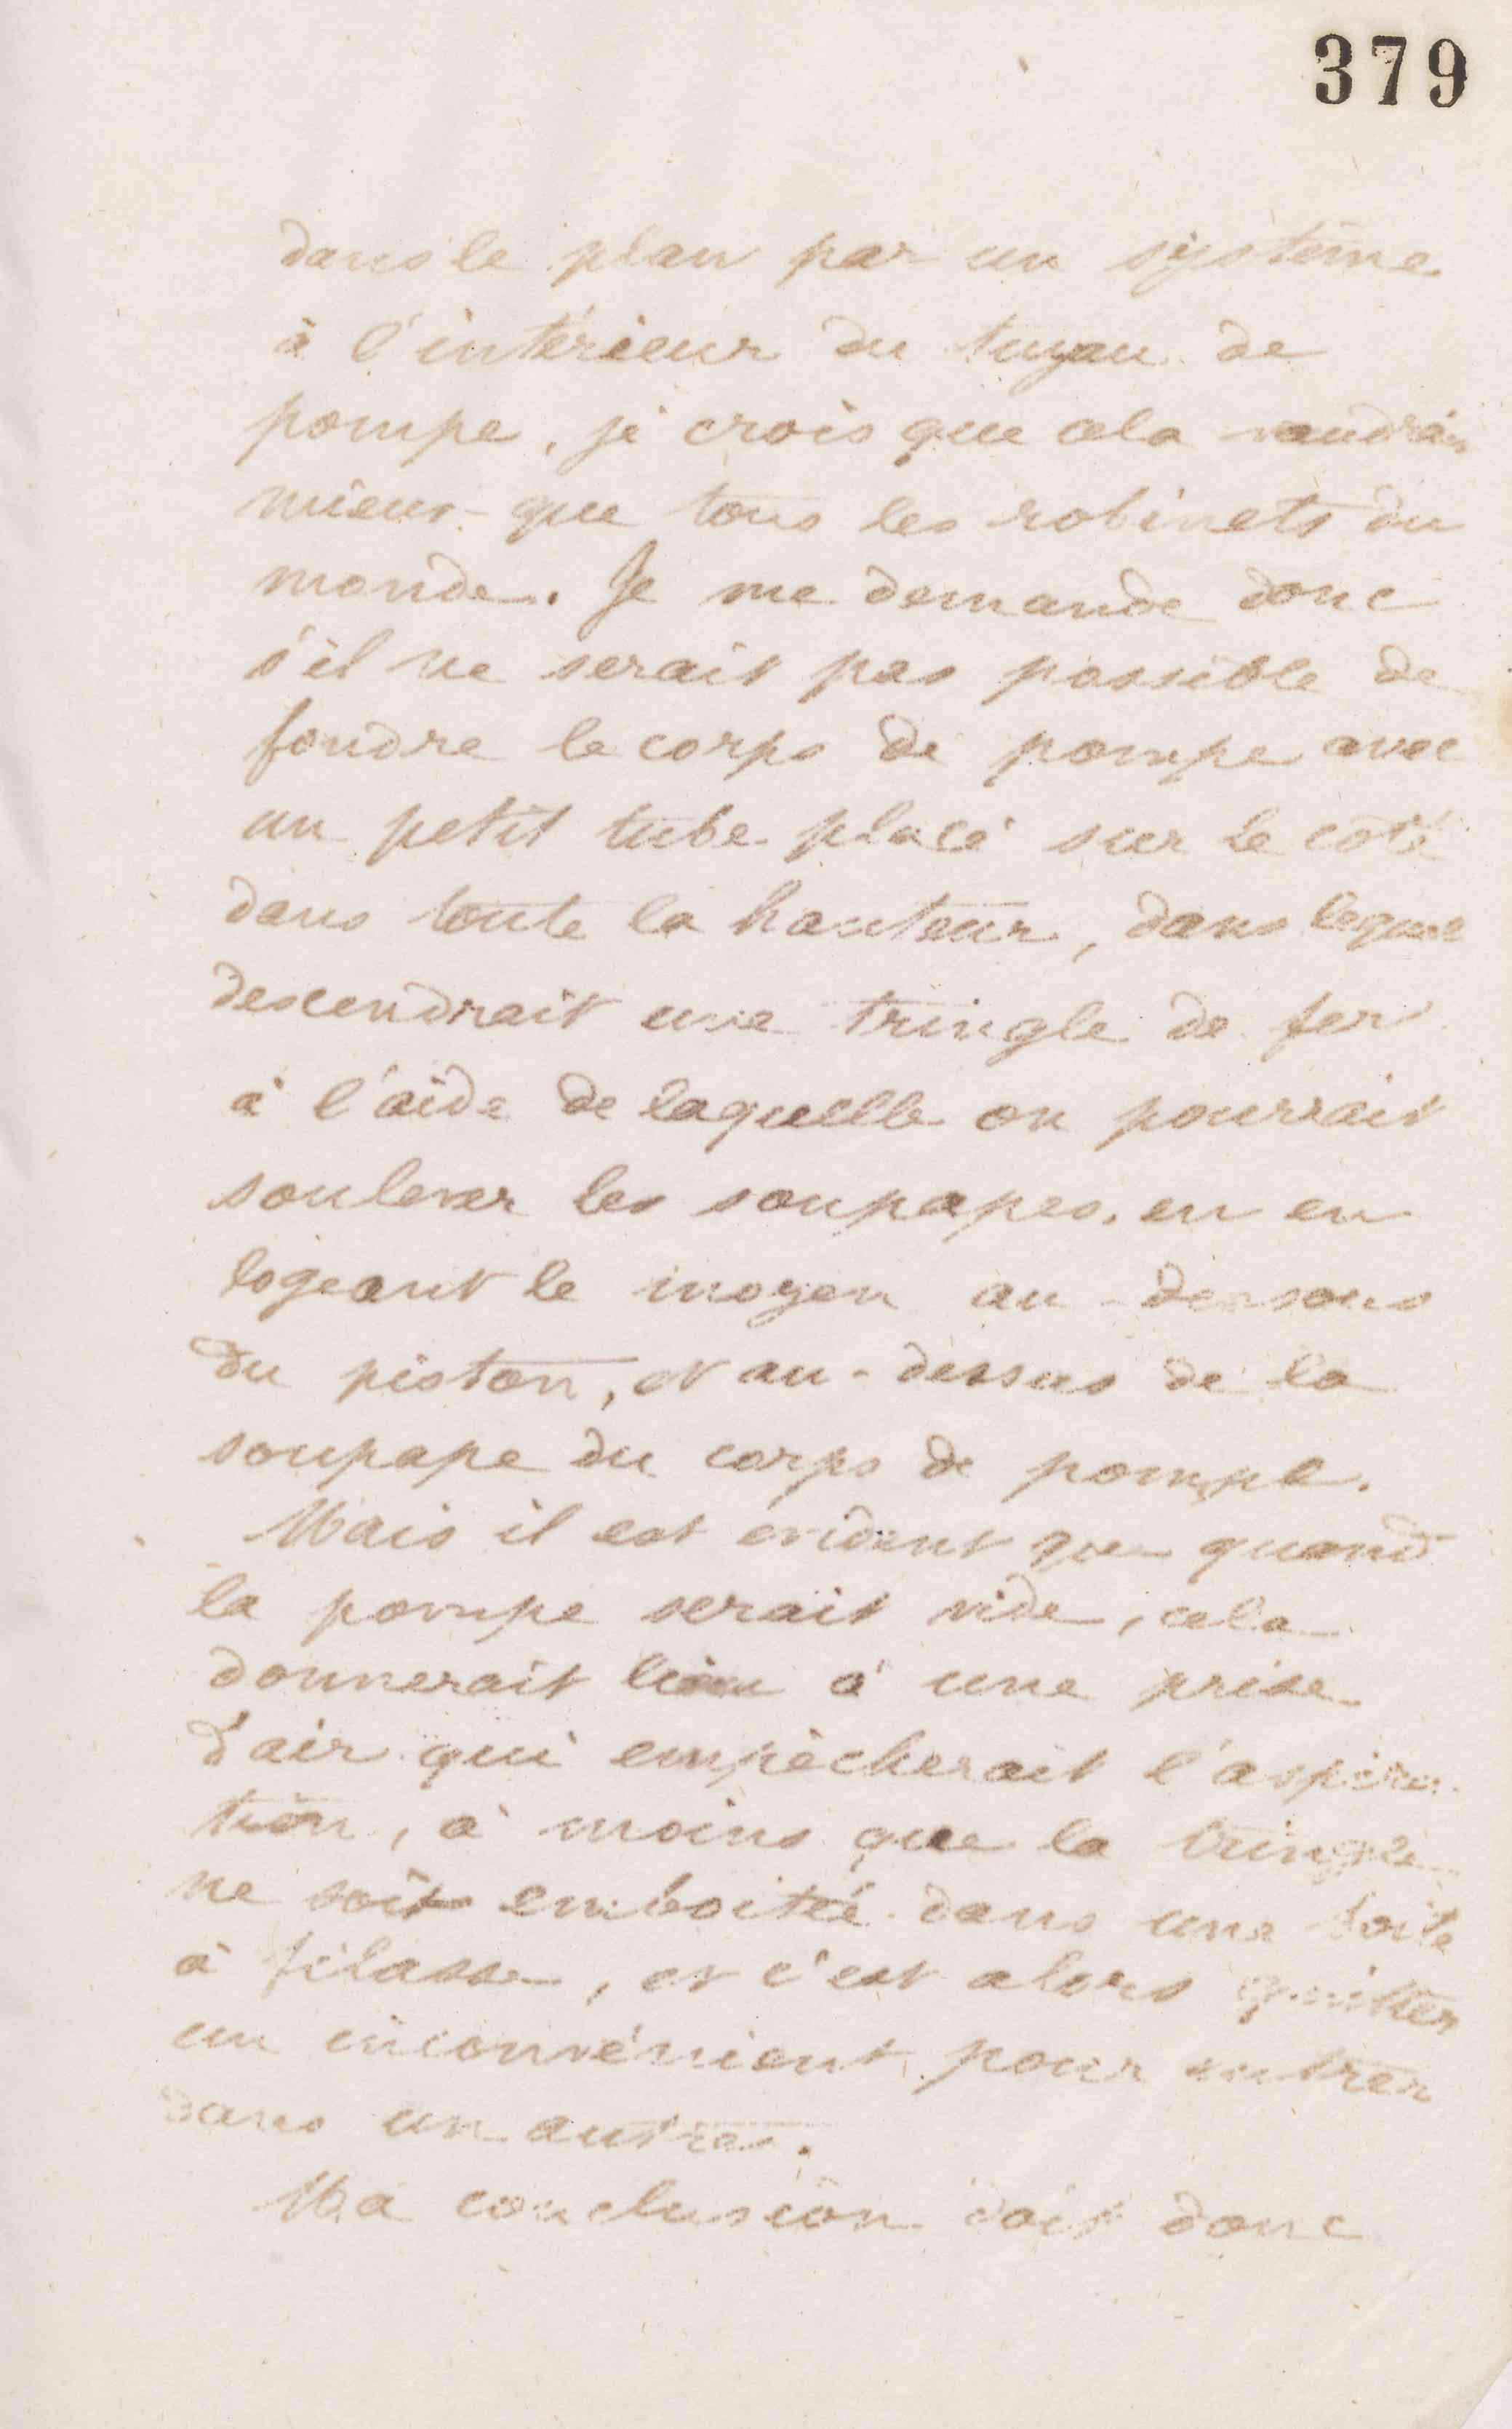 379
dans le plan par un système
à l'intérieur du tuyau de
pompe, je crois que cela vaudrait
mieux que tous les robinets du
monde. Je me demande donc
s'il ne serait pas possible de
fondre le corps de pompe avec
un petit tube placé sur le côté
dans toute la hauteur, dans lequel
descendrait une tringle de fer
à l'aide de laquelle on pourrait
soulever les soupapes, en en
logeant le moyen au-dessous
du piston, et au-dessus de la
soupape du corps de pompe.
Mais il est évident que quand
la pompe serait vide, cela
donnerait lieu à une prise
d'air qui empêcherait l'aspira-
tion, à moins que la tringle
ne soit emboîtée dans une boîte
à filasse, et c'est alors quitter
un inconvénient pour entrer
dans un autre.
Ma conclusion doit donc